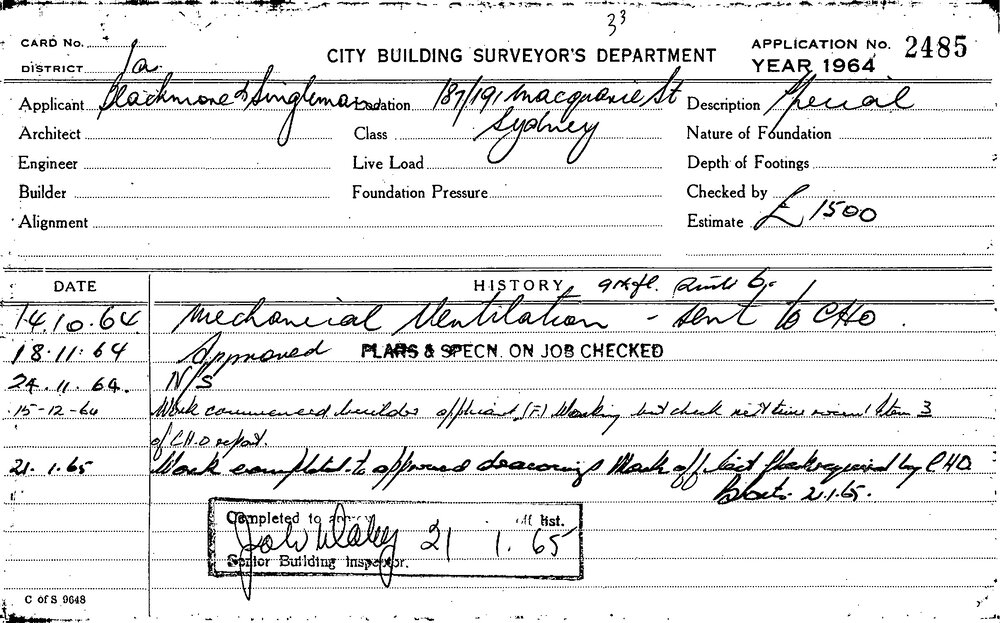 33
CARD No.
CITY BUILDING SURVEYOR'S DEPARTMENT
APPLICATION No. 2485
DISTRICT 1a
YEAR 1964
Applicant Blackmore & Location 187/191 Macquarie St Description Special
Architect Class Sydney Nature of Foundation
Engineer Live Load Depth of Footings
Builder Foundation Pressure Checked by
Alignment Estimate £1500
DATE HISTORY
14.10.64 Mechanical Ventilation - sent to CHO.
18.11.64 Approved PLANS & SPECN. ON JOB CHECKED
24.11.64. N/S
15-12-64 Work commenced builder applicant (F) Working but check next time Item 3
of C.H.O report.
21.1.65 Work completed to approved drawings Mark off list required by CHO
21.1.65.
Completed to list.
21 1.65
Senior Building Inspector.
C of S 9648